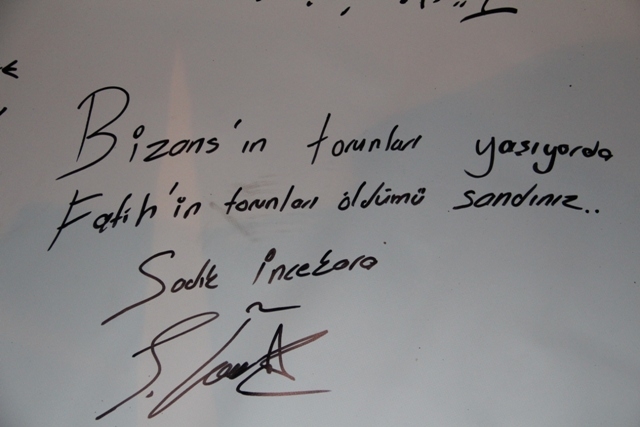 Bizans'ın torunları yaşıyorda
Fatih'in torunları öldümü sandınız..
Sadık İncekara